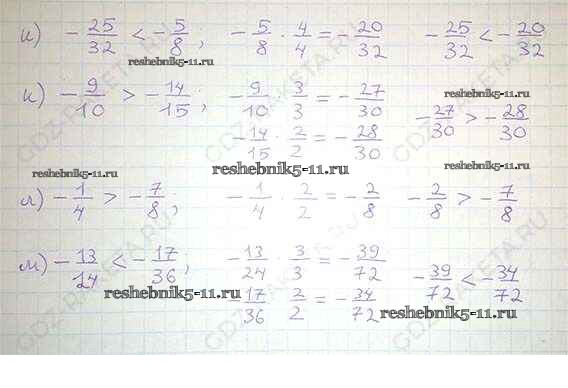 и) -25/32 < -5/8; -5/8 · 4/4 = -20/32 -25/32 < -20/32
reshebnik5-11.ru
к) -9/10 > -14/15; -9/10 · 3/3 = -27/30
-14/15 · 2/2 = -28/30 -27/30 > -28/30
reshebnik5-11.ru
reshebnik5-11.ru
reshebnik5-11.ru
л) -1/4 > -7/8; -1/4 · 2/2 = -2/8 -2/8 > -7/8
м) -13/24 < -17/36; -13/24 · 3/3 = -39/72
-17/36 · 2/2 = -34/72 -39/72 < -34/72
reshebnik5-11.ru
reshebnik5-11.ru
GDZ-RAKETA.RU